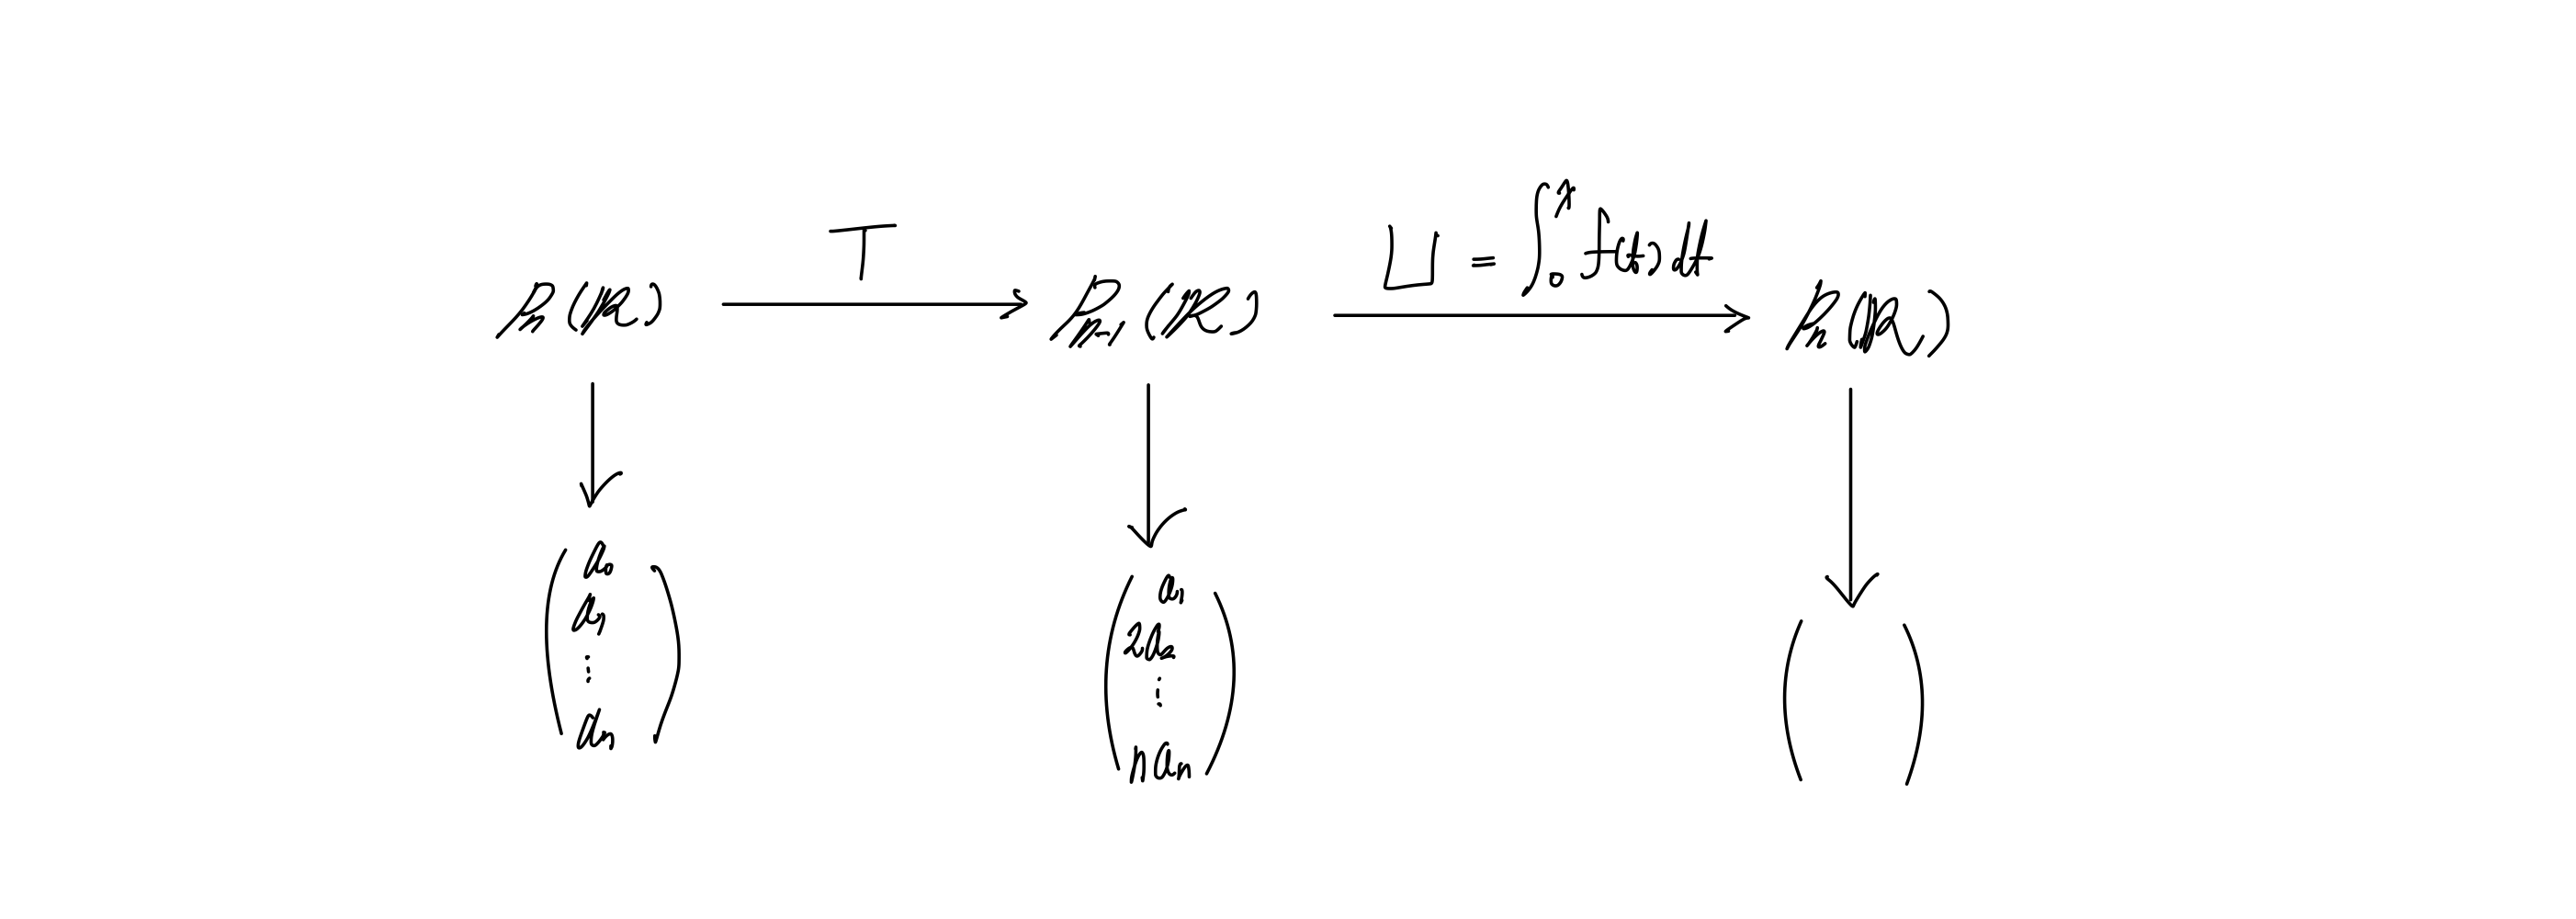 T
U = ∫₀ˣ f(t) dt
Pₙ(ℝ) → Pₙ₋₁(ℝ) → Pₙ(ℝ)
( a₀
a₁
⋮
aₙ )
( a₁
2a₂
⋮
naₙ )
( )